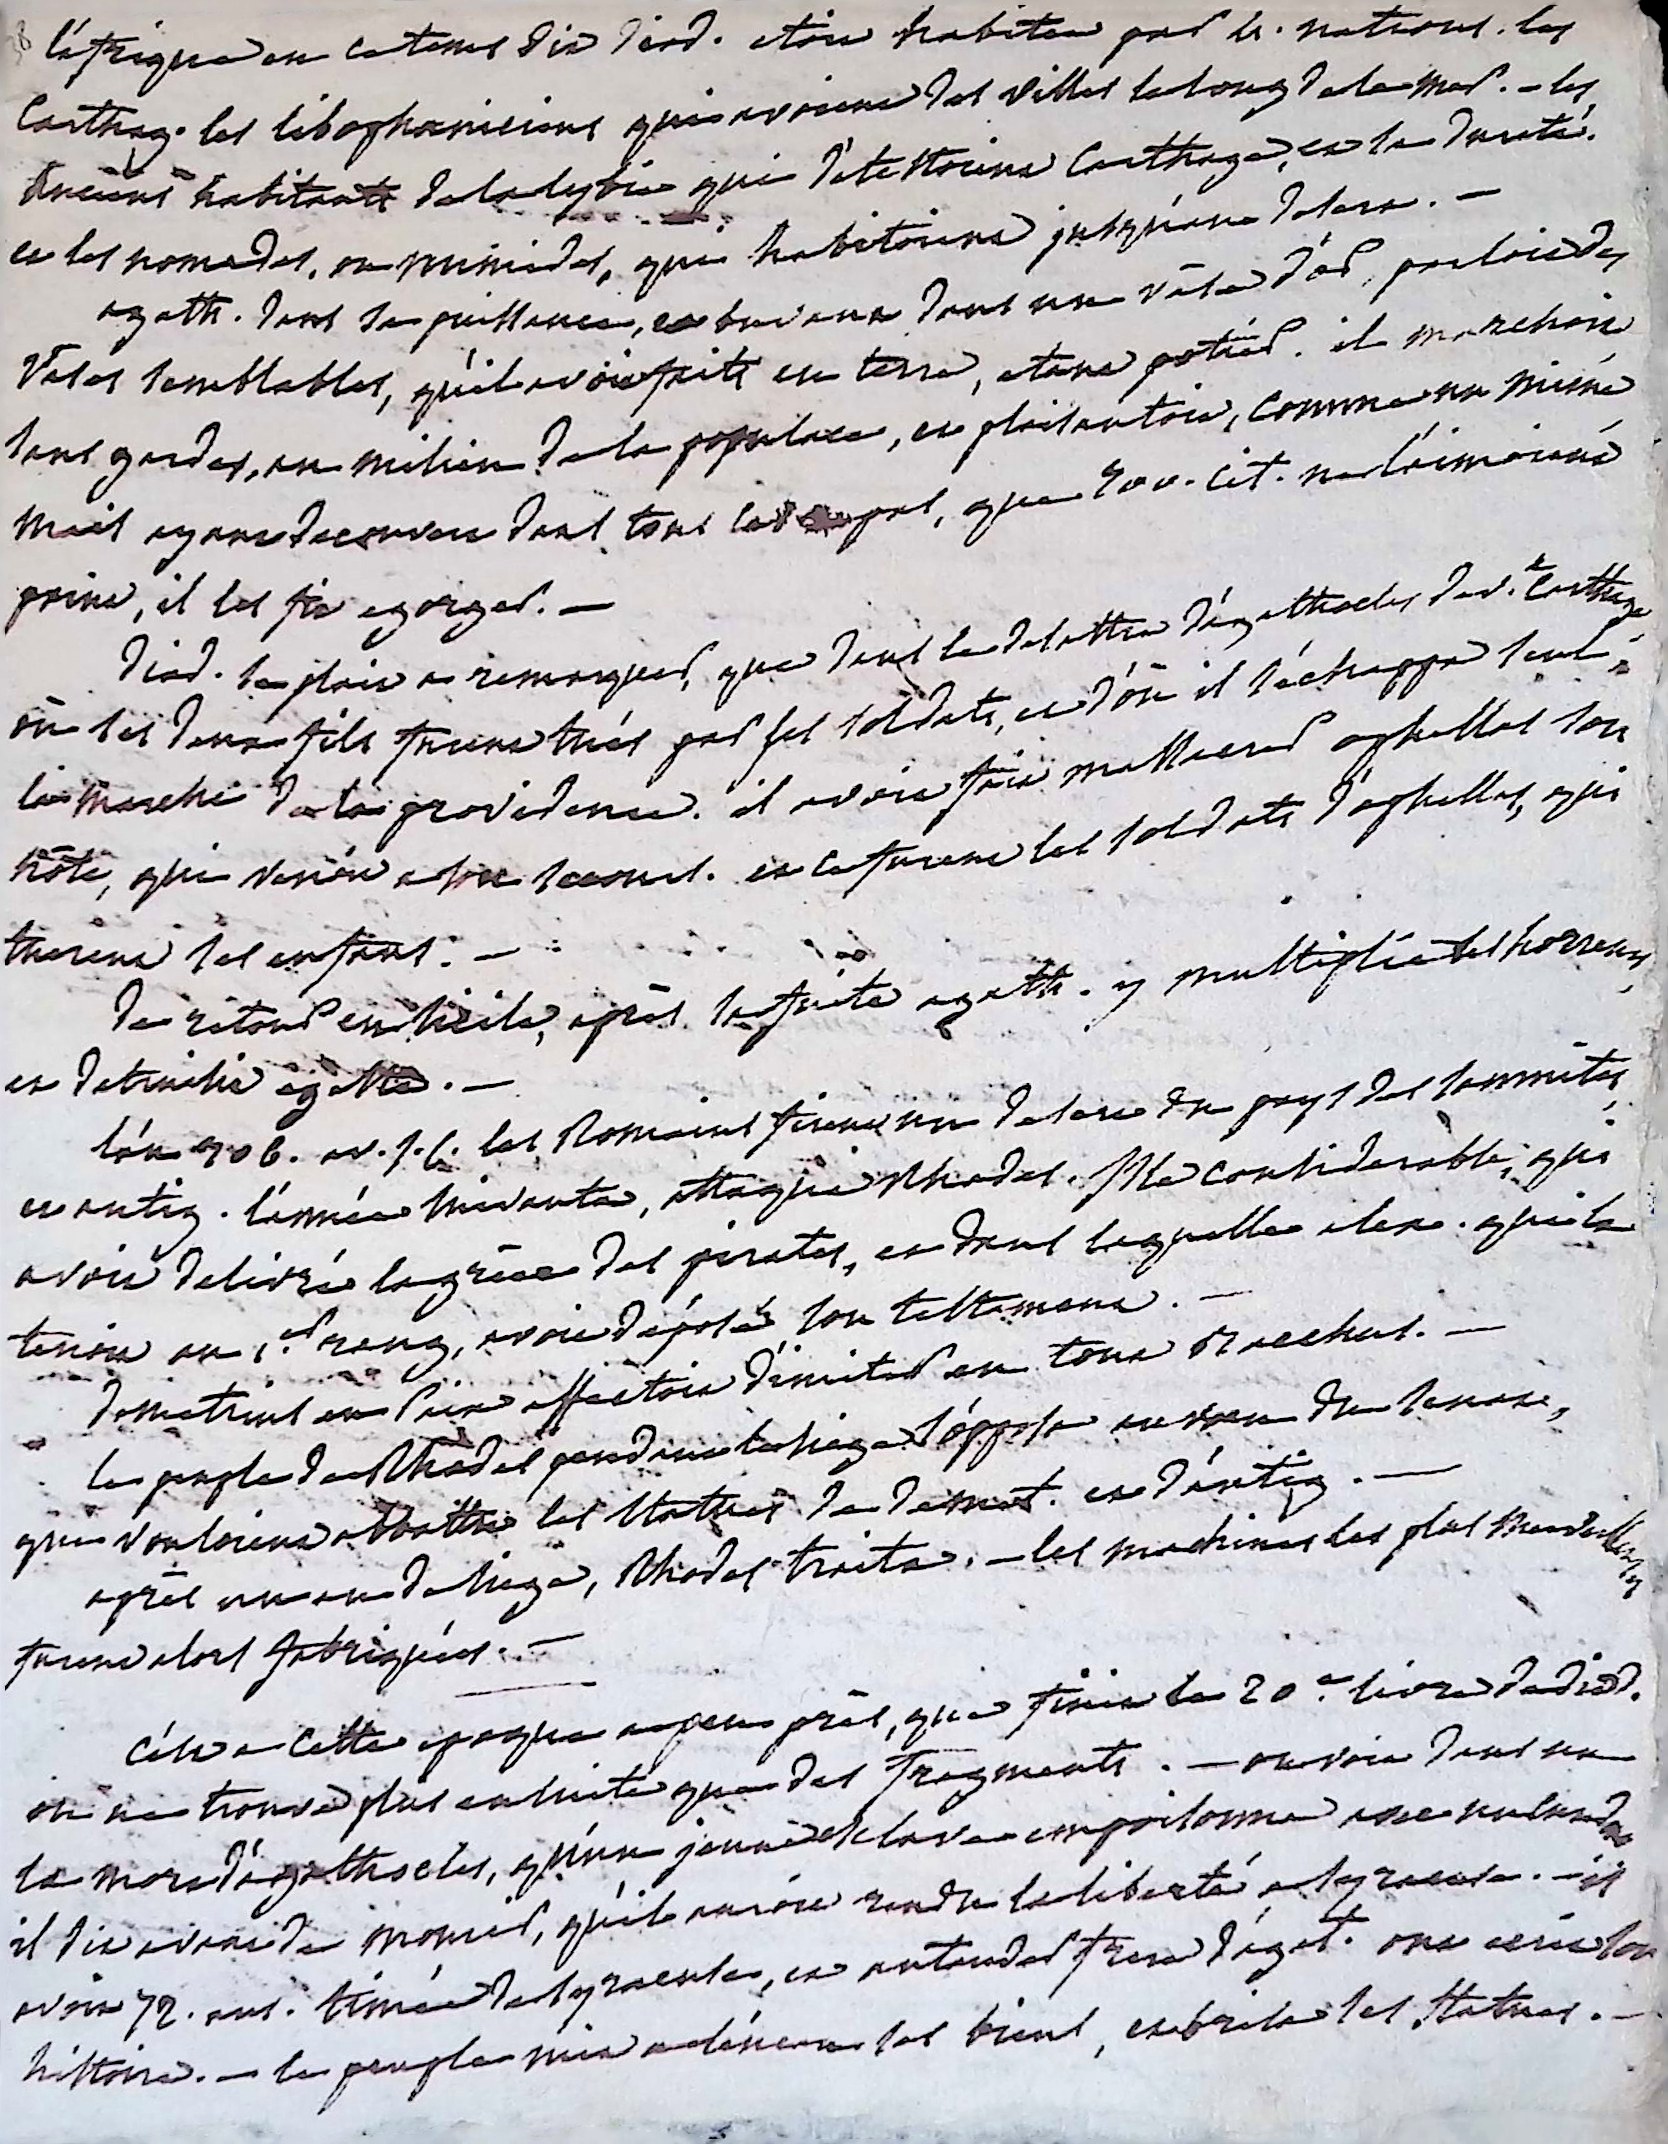 l'afrique en ce tems dit diod. etoit habitée par 4. nations. les
Carthag. les libophoeniciens qui avoient des villes le long de la mer. – les
anciens habitants de la lybie qui détestoient Carthage, et sa dureté.
et les nomades, ou numides, qui habitoient jusqu'aux deserts. –
agath. dans sa puissance, et buvant dans un vase d'or, parloit des
vases semblables, qu'il avoit faits en terre, etant potier. il marchoit
sans gardes, au milieu de la populace, et plaisantoit, comme un mime
mais ayant decouvert dans tous les repas, que 500. cit. ne l'aimoient
point, il les fit egorger. –
diod. se plait a remarquer, que dans la defaitte d'agathocles dev.t Carthage
où ses deux fils furent tués par ses soldats, et d'où il s'échappa seul,
la marche de la providence. il avoit fait massacrer ophellas son
hôte, qui venoit a son secours. et ce furent les soldats d'ophellas, qui
tuerent ses enfans. –
de retour en sicile, après sa fuite agath. y multiplia les horreurs,
et detruisit egeste. –
l'an 306. av. J. C. les Romains firent un desert du pays des samnites,
et antig. l'année suivante, attaqua Rhodes. Isle considerable, qui
avoit delivré la grèce des pirates, et dans laquelle alex. qui la
tenoit au 1.er rang, avoit déposé son testament. –
demetrius en paix affectoit d'imiter en tout Bacchus. –
le peuple de Rhodes pendant le siege s'opposa au voeu du senat,
qui vouloient abbattre les statues de demet. et d'antig. –
après un an de siege, Rhodes traita. – les machines les plus merveilleuses
furent alors fabriquées. –
c'est a cette epoque a peu près, que finit le 20.e livre de diod.
on ne trouve plus ensuite que des fragments. – on voit dans un
la mort d'agathocles, qu'un jeune esclave empoisonna avec un curedent
il dit avant de mourir, qu'il auroit rendu la liberté a syracuse. – il
avoit 72. ans. timée de syracuse, et antander frere d'agat. ont ecrit son
histoire. – le peuple mit a l'encan ses biens, et brisa ses statues. –